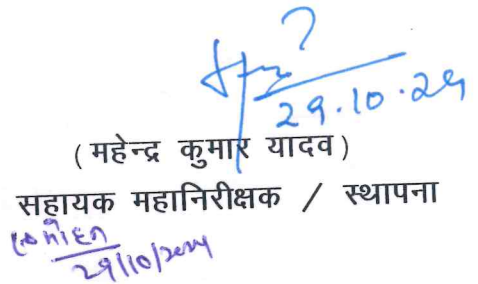 29.10.24
( महेन्द्र कुमार यादव )
सहायक महानिरीक्षक / स्थापना
29/10/2024